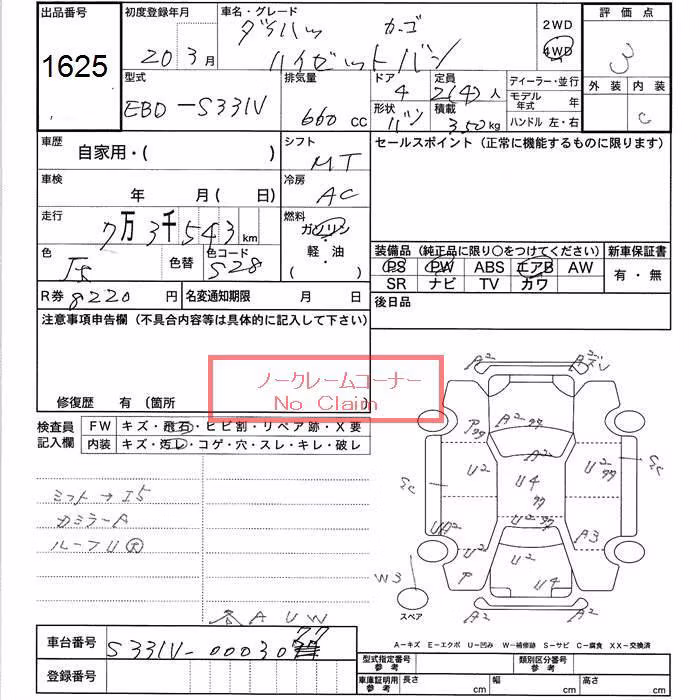 出品番号 初度登録年月 車名・グレード 評価点
1625 20 3月 ダイハツ カーゴ 2WD 3
ハイゼットバン 4WD
型式 排気量 ドア 定員 ディーラー・並行 外装 内装
EBD-S331V 660 CC 4 2(4)人 モデル年式 年 C
形状 バン 積載 350kg ハンドル 左・右
車歴 自家用・( ) シフト MT セールスポイント(正常に機能するものに限ります)
車検 年 月(日) 冷房 AC
走行 7万3千543km 燃料 ガソリン・軽油・( )
色 色替 色コード S28 装備品(純正品に限り○をつけてください) 新車保証書
PS PW ABS エアB AW 有・無
SR ナビ TV カワ
R券 8220円 名変通知期限 月 日 後日品
注意事項申告欄(不具合内容等は具体的に記入して下さい)
ノークレームコーナー
No Claim
修復歴 有(箇所
検査員記入欄 FW キズ・飛石・ヒビ割・リペア跡・X要
内装 キズ・汚レ・コゲ・穴・スレ・キレ・破レ
A2 A2
P A2
A2
U2 U4 U2
U2 U2 A3
U2 U2
W3 P U4
スペア A2 A2
カミラーA
ルーフU
A U W
A-キズ E-エクボ U-凹み W-補修跡 S-サビ C-腐食 XX-交換済
車台番号 S331V-00030 77 型式指定番号 参考 類別区分番号 参考
登録番号 車庫証明用 参考 長さ cm 幅 cm 高さ cm